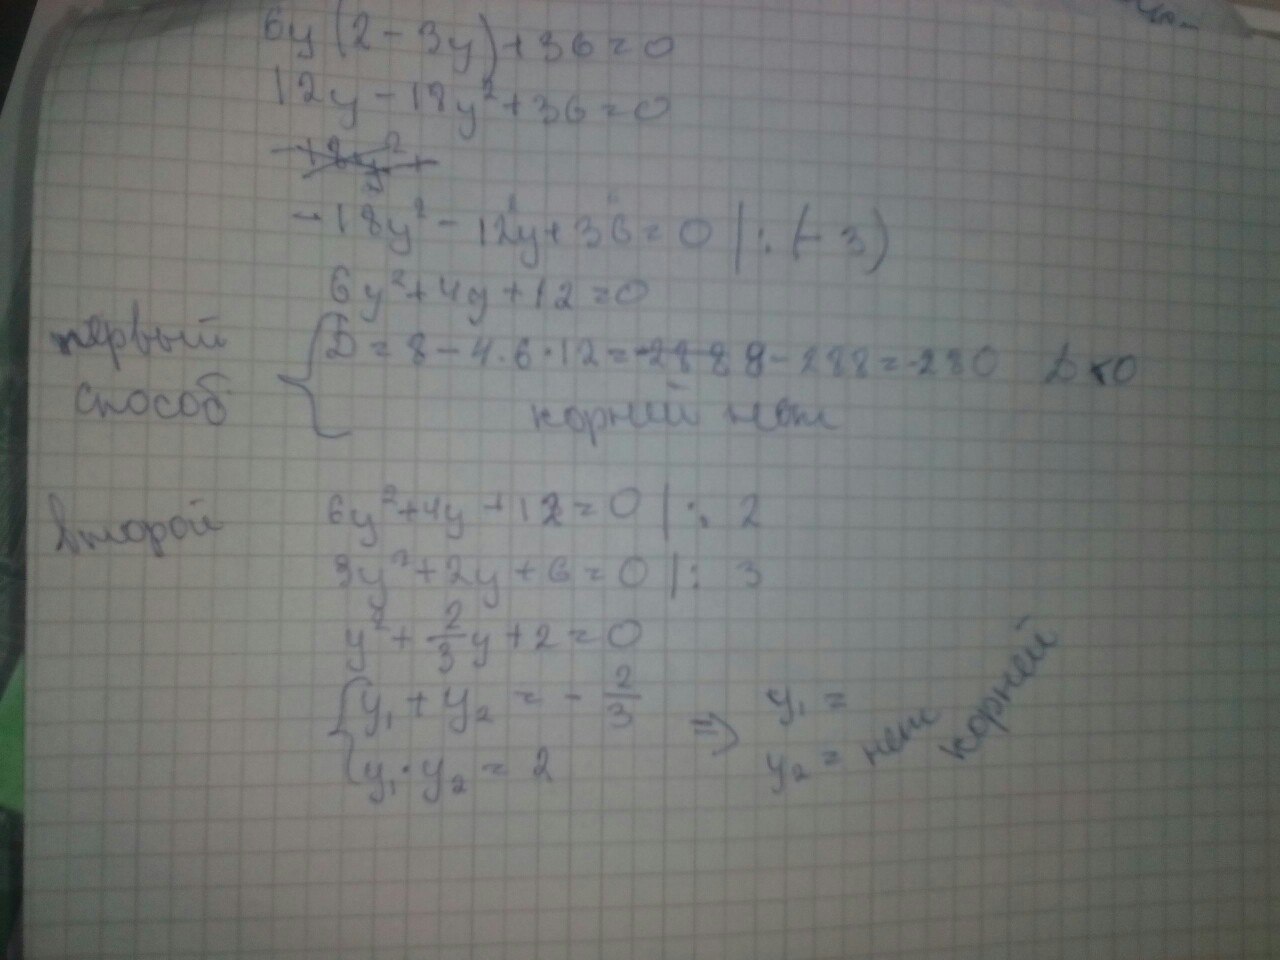 6y(2 - 3y) + 36 = 0
12y - 18y² + 36 = 0
-18y² - 12y + 36 = 0 | : (- 3)
6y² + 4y + 12 = 0
первый способ
D = 8 - 4 · 6 · 12 = 8 - 288 = -280 D < 0
корний нет
второй
6y² + 4y + 12 = 0 | : 2
3y² + 2y + 6 = 0 | : 3
y² + 2/3 y + 2 = 0
y₁ + y₂ = - 2/3
y₁ · y₂ = 2
⇒ y₁ =
y₂ = нет корней